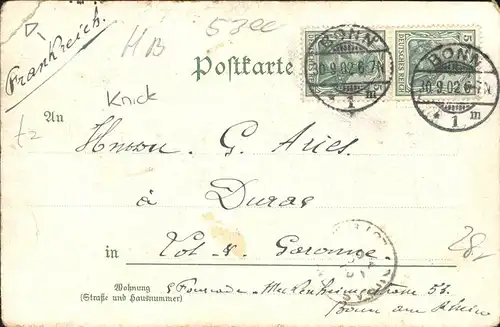 Frankreich.
HB
5300
Postkarte
Knick
DEUTSCHES REICH
DEUTSCHES REICH
BONN
10.9.02.6-7N
* 1 m
BONN
10.9.02.6-7N
* 1 m
An
G. Aries
à Duras
in Lot & Garonne.
28,-
Wohnung
(Straße und Hausnummer)
Bonn am Rhein